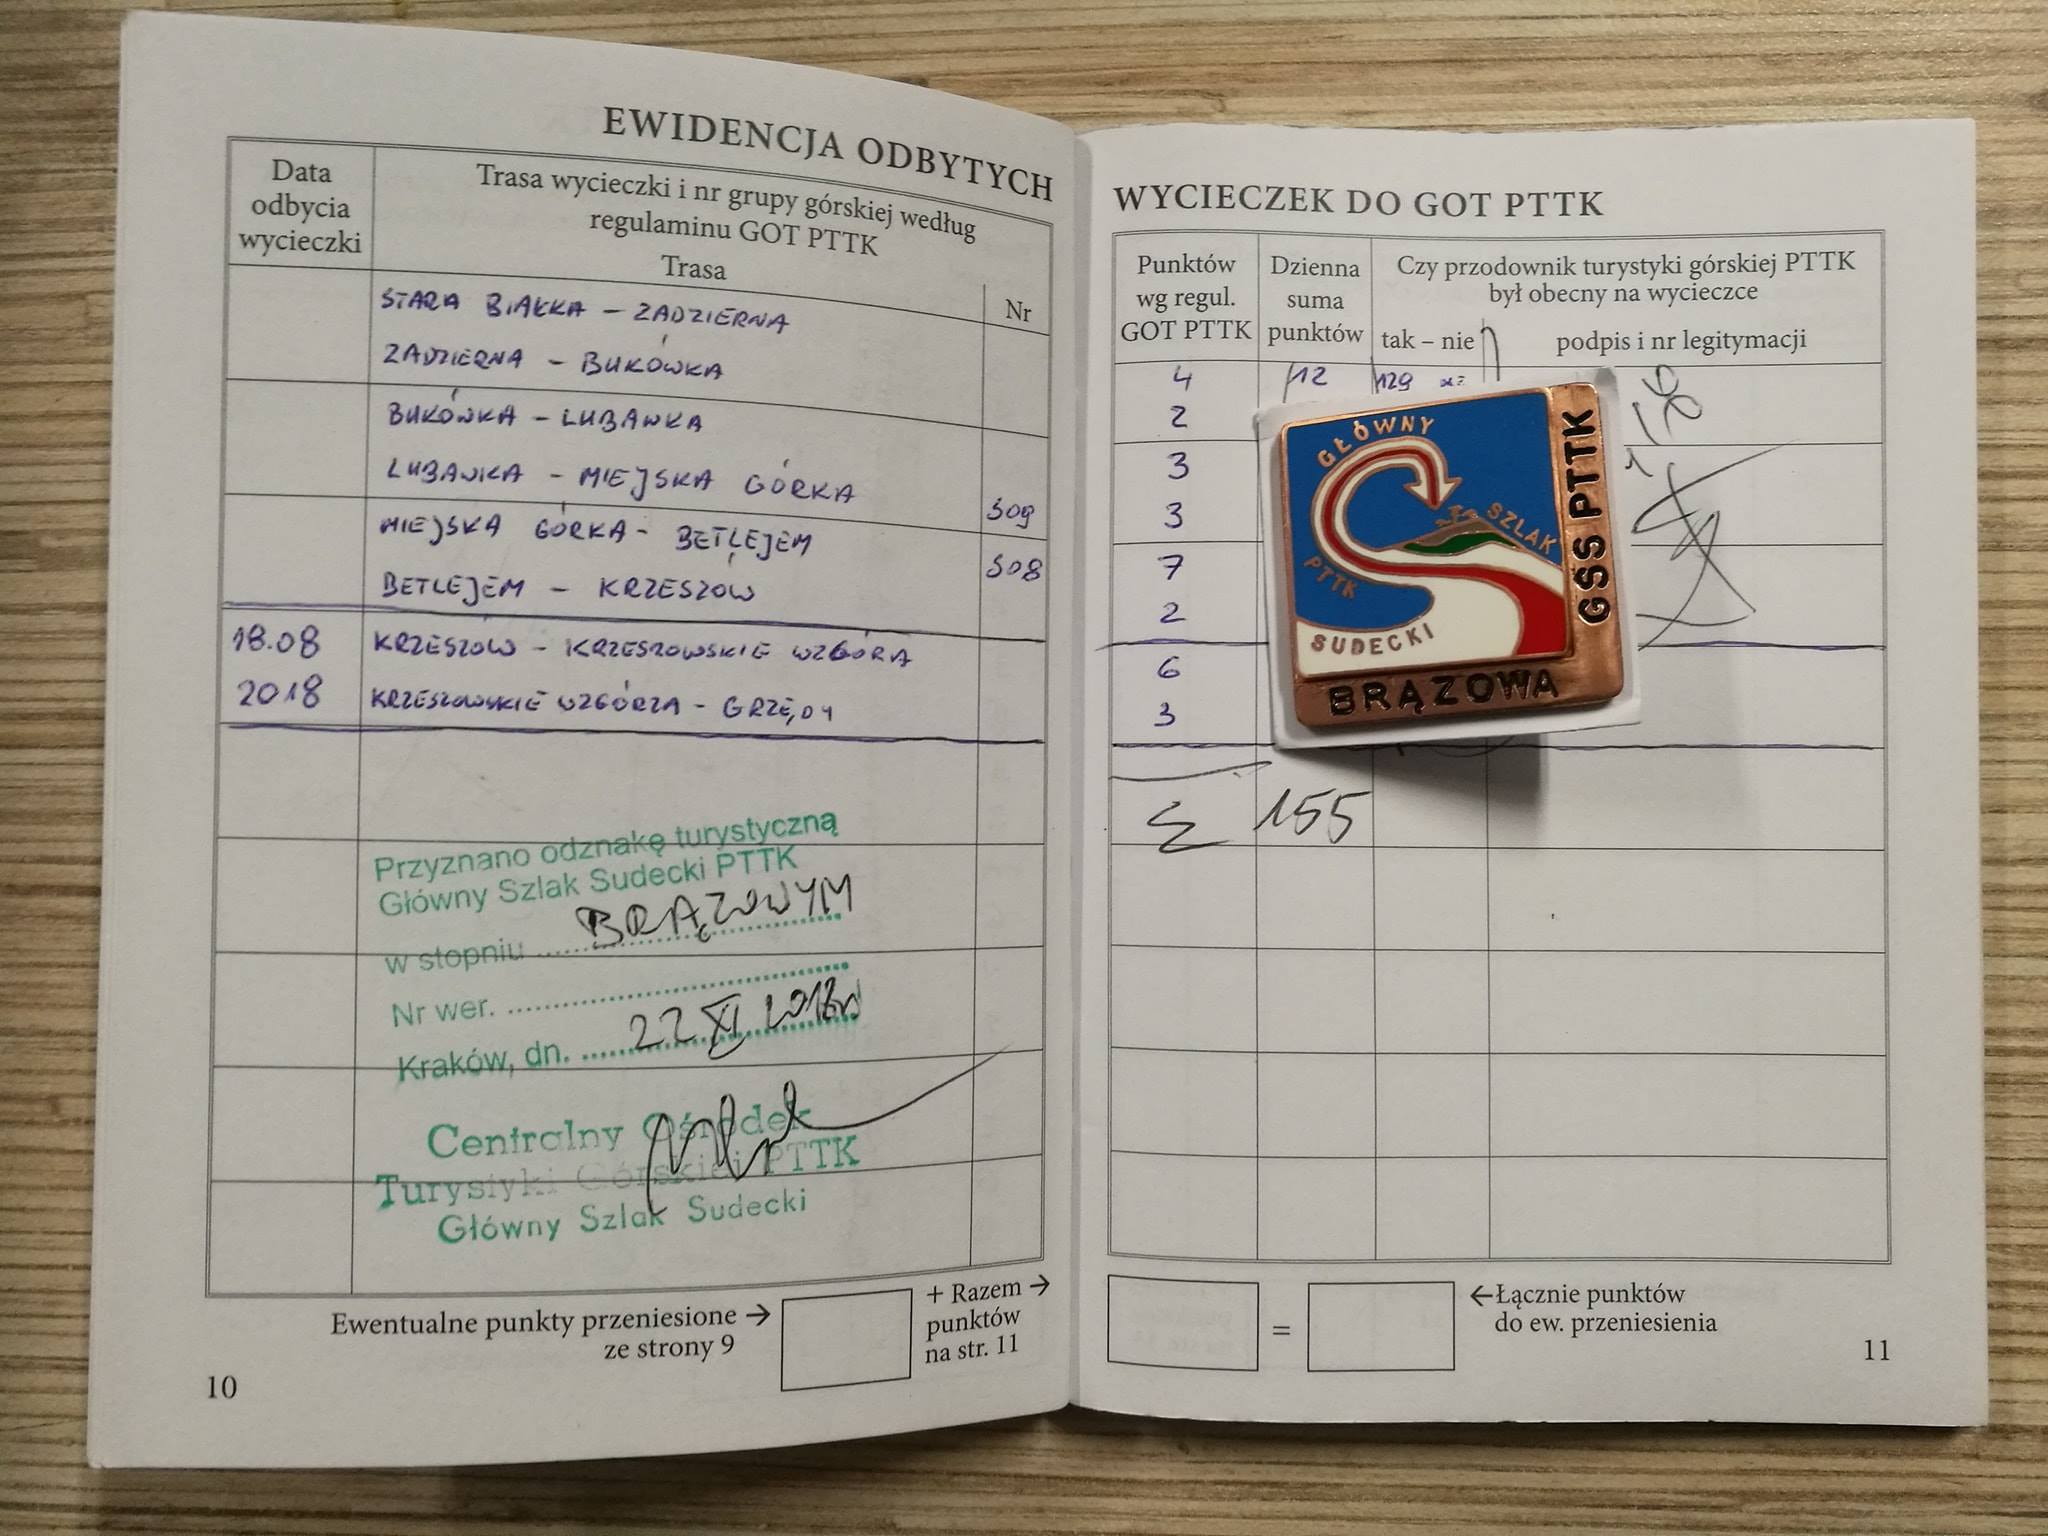 EWIDENCJA ODBYTYCH
Data
odbycia
wycieczki
Trasa wycieczki i nr grupy górskiej według
regulaminu GOT PTTK
Trasa
Nr
STARA BIAŁKA – ZADZIERNA
ZADZIERNA – BUKÓWKA
BUKÓWKA – LUBAWKA
LUBAWKA – MIEJSKA GÓRKA
S09
MIEJSKA GÓRKA – BETLEJEM
S08
BETLEJEM – KRZESZÓW
18.08
KRZESZÓW – KRZESZOWSKIE WZGÓRA
2018
KRZESZOWSKIE WZGÓRZA – GRZĘDY
Przyznano odznakę turystyczną
Główny Szlak Sudecki PTTK
w stopniu BRĄZOWYM
Nr wer.
Kraków, dn. 22 XI 2018r
Centralny Ośrodek
Turystyki Górskiej PTTK
Główny Szlak Sudecki
Ewentualne punkty przeniesione →
ze strony 9
+ Razem →
punktów
na str. 11
10
WYCIECZEK DO GOT PTTK
Punktów
wg regul.
GOT PTTK
Dzienna
suma
punktów
Czy przodownik turystyki górskiej PTTK
był obecny na wycieczce
tak – nie
podpis i nr legitymacji
4
12
129
2
3
3
7
2
6
3
Σ 155
GŁÓWNY
SZLAK
PTTK
SUDECKI
GSS PTTK
BRĄZOWA
=
←Łącznie punktów
do ew. przeniesienia
11